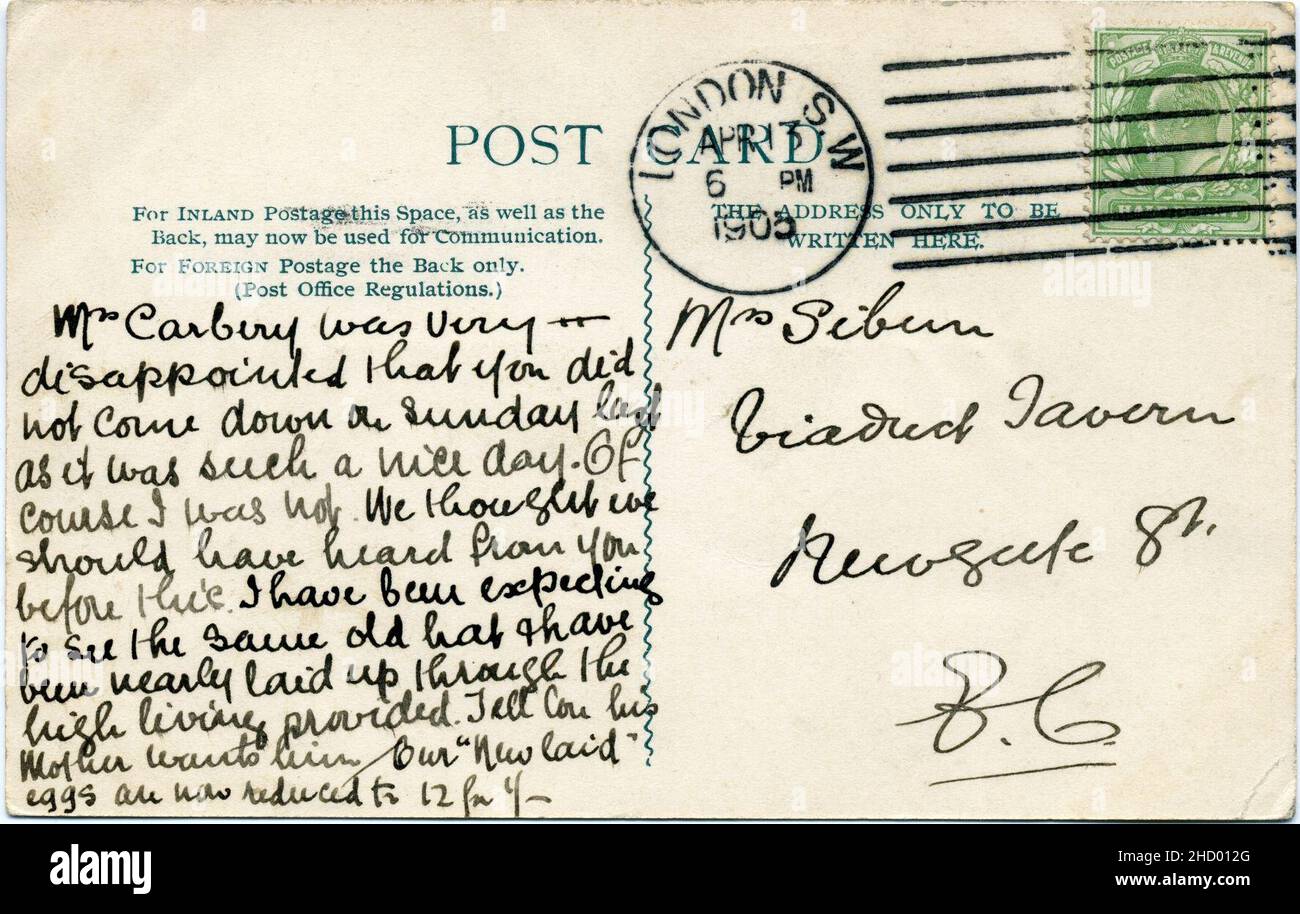 POST CARD
LONDON S.W
APR 13
6 PM
1905
POSTAGE & REVENUE
For INLAND Postage this Space, as well as the
Back, may now be used for Communication.
For FOREIGN Postage the Back only.
(Post Office Regulations.)
THE ADDRESS ONLY TO BE
WRITTEN HERE.
Mrs Carbery was very
disappointed that you did
not come down on Sunday last
as it was such a nice day. Of
course I was not. We thought we
should have heard from you
before this. I have been expecting
to see the same old hat & have
been nearly laid up through the
high living provided. Tell Con his
Mother wants him Our "New laid"
eggs are now reduced to 12 for 1/-
Mrs Sibun
Viaduct Tavern
Newgate St.
E.C.
alamy
alamy
alamy
alamy
alamy
Image ID: 2HD012G
www.alamy.com